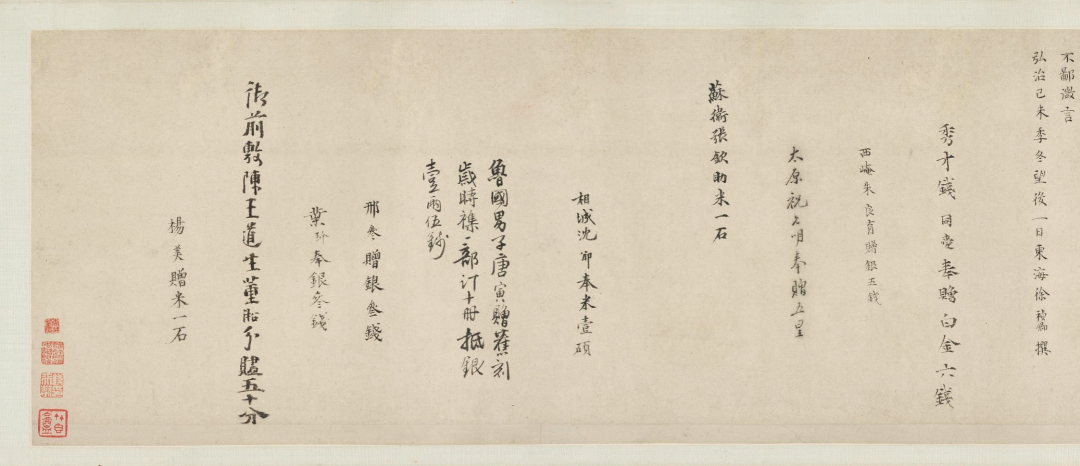 不鄙譏言
弘治己未季冬望後一日東海徐禎卿撰
秀才錢同愛奉贈白金六錢
西崦朱良育贈銀五錢
太原祝允明奉贈五星
蘇衛張欽助米一石
相城沈邠奉米壹碩
魯國男子唐寅贈舊刻
歲時襍一部計十冊抵銀
壹兩伍錢
邢參贈銀叁錢
葉玠奉銀叁錢
御前敷陳王道生董淞分贐五十分
楊美贈米一石